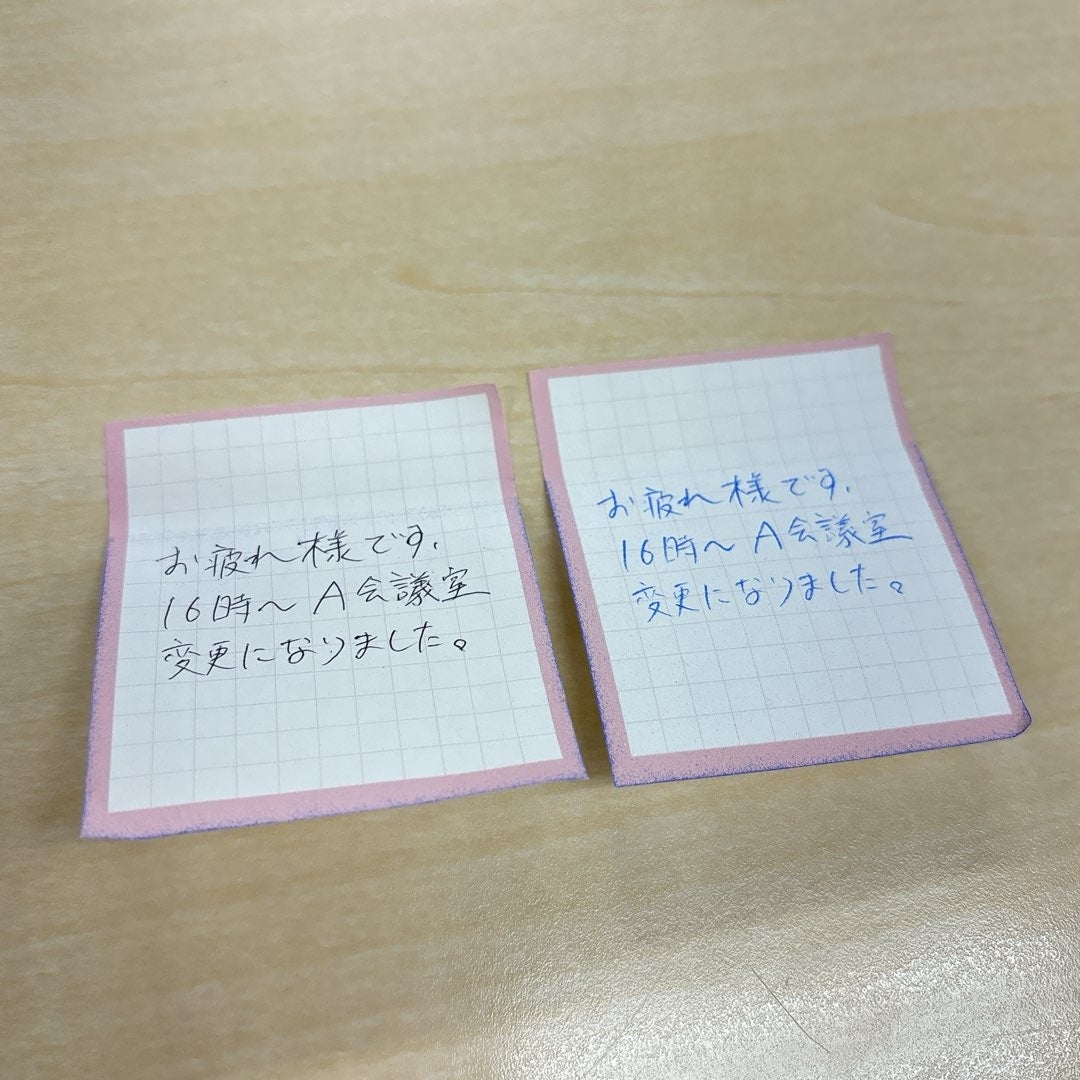 お疲れ様です、
16時〜A会議室
変更になりました。
お疲れ様です、
16時〜A会議室
変更になりました。